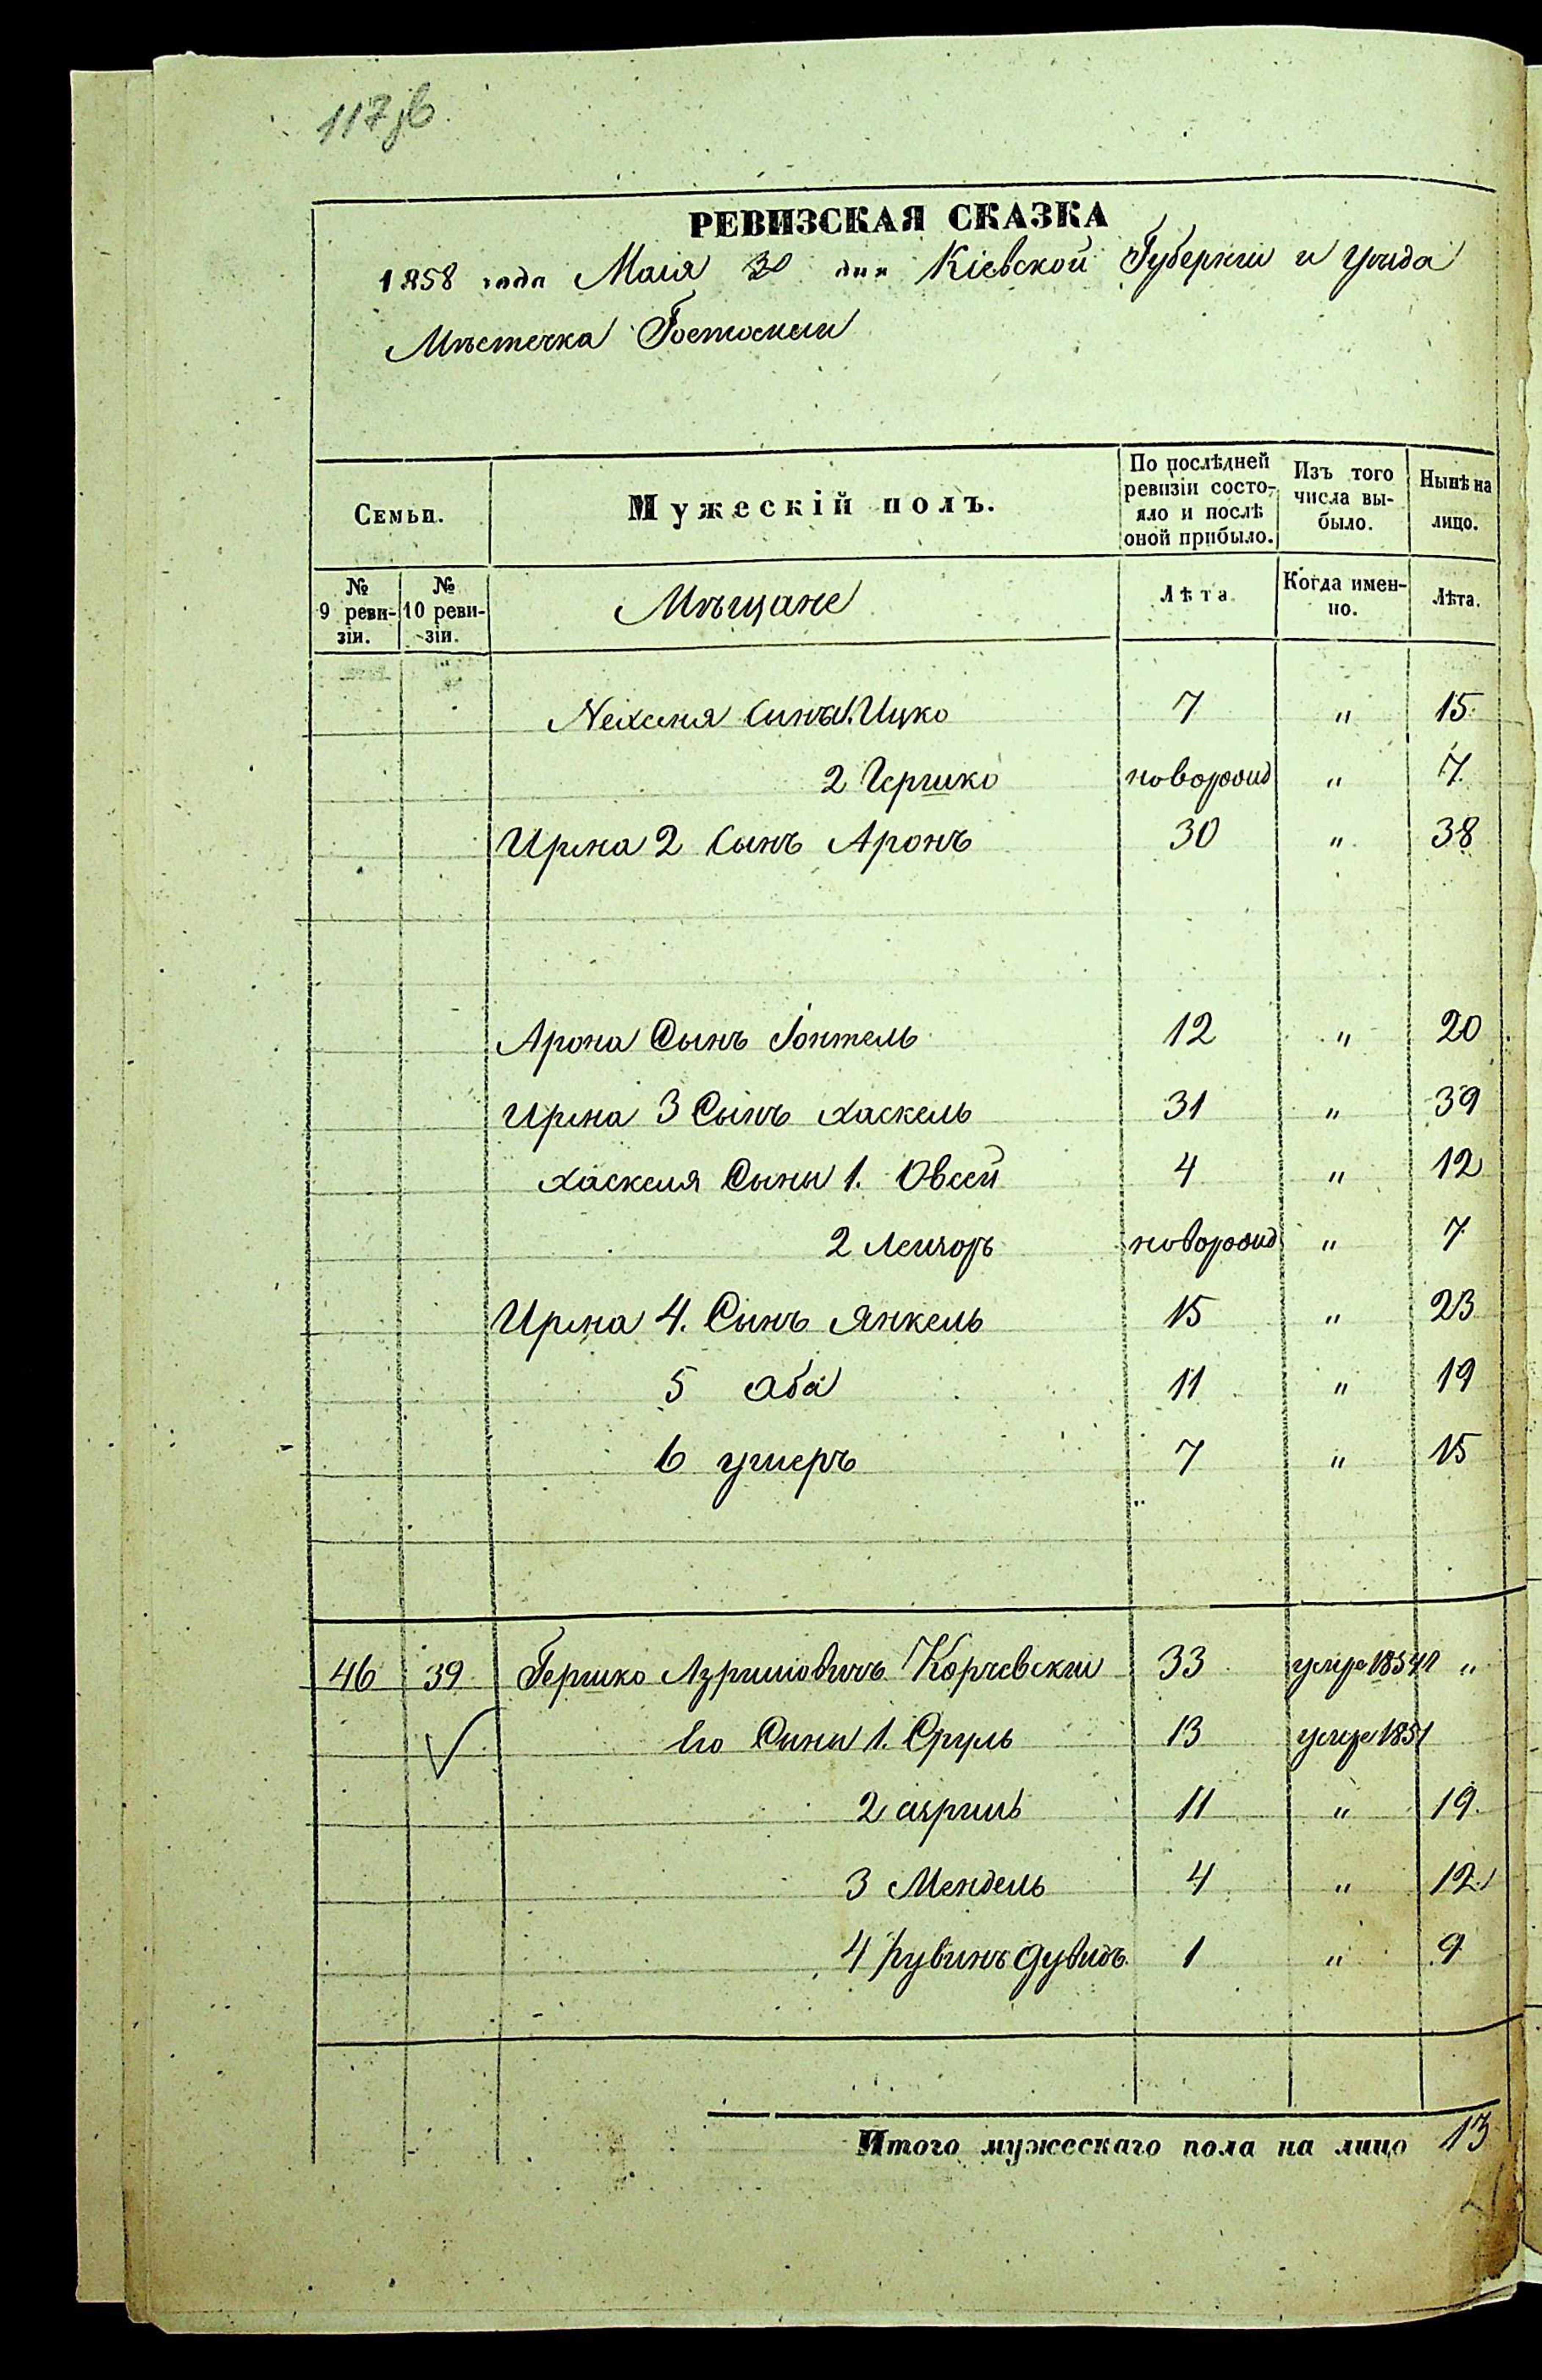 РЕВИЗСКАЯ СКАЗКА
1858 года Маія 30 дня Кіевской Губерніи и уѣзда
Мѣстечка Гостомли
Семьи. Мужескій полъ. По послѣдней ревизіи состояло и послѣ оной прибыло. Изъ того числа выбыло. Нынѣ на лицо.
№ 9 ревизіи. № 10 ревизіи. Мѣщане Лѣта Когда именно. Лѣта.
сынъ 1. Ицко 7 " 15
2 Гершко новорожд " 7
Ирма 2 Сынъ Аронъ 30 " 38
Арона Сынъ 12 " 20
Ирма 3 Сынъ Хаскель 31 " 39
Хаскеля Сыны 1. Овсей 4 " 12
2 новорожд " 7
Ирма 4. Сынъ Янкель 15 " 23
5 Аба 11 " 19
6 ушеръ 7 " 15
46 39 Гершко Азриліовичъ Корчевскій 33 умре "
Его Сыны 1. Сруль 13 умре 1851
2 азриль 11 " 19
3 Мендель 4 " 12
4 рувинъ дувидъ 1 " 9
Итого мужескаго пола на лицо 13